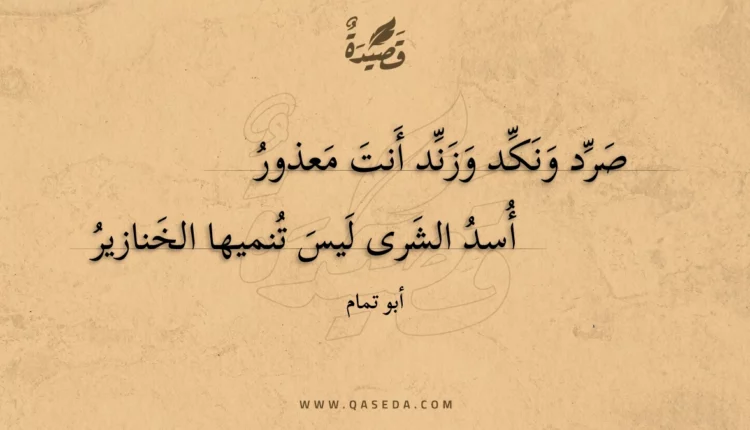 قَصِيْدَةٌ
صَرِّد وَنَكِّد وَزَنِّد أَنتَ مَعذورُ
أُسدُ الشَرى لَيسَ تُنميها الخَنازيرُ
أبو تمام
WWW.QASEDA.COM